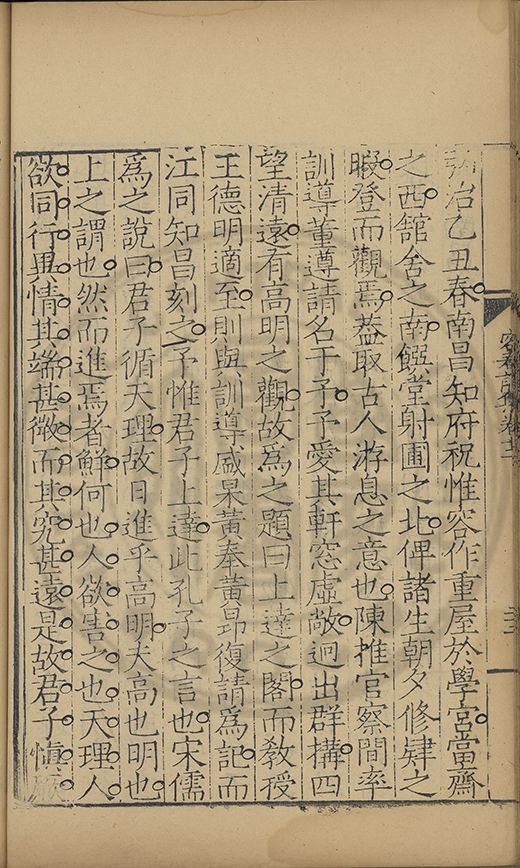 弘治乙丑春南昌知府祝惟容作重屋於學宮當齋
之西館舍之南饌堂射圃之北俾諸生朝夕修肄之
暇登而觀焉葢取古人游息之意也陳推官察間率
訓導董遵請名于予予愛其軒窓虛敞逈出群搆四
望清遠有高明之觀故爲之題曰上達之閣而教授
王德明適至則與訓導盛杲黃奉黃昂復請爲記而
江同知昌刻之予惟君子上達此孔子之言也宋儒
爲之說曰君子循天理故日進乎高明夫高也明也
上之謂也然而進焉者鮮何也人欲害之也天理人
欲同行異情其端甚微而其究甚遠是故君子愼厥